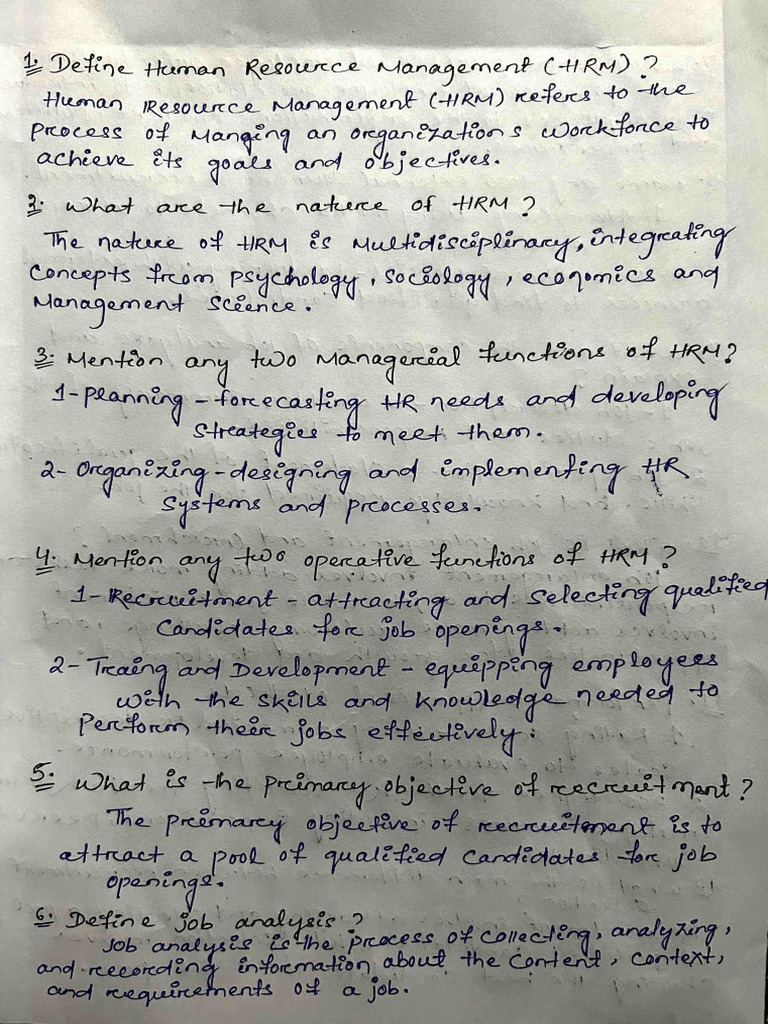 1. Define Human Resource Management (HRM) ?
Human Resource Management (HRM) refers to the
process of Manging an organizations workforce to
achieve its goals and objectives.
2. What are the nature of HRM ?
The nature of HRM is Multidisciplinary, integrating
concepts from psychology, sociology, economics and
Management Science.
3. Mention any two Managerial functions of HRM?
1-planning - forecasting HR needs and developing
Strategies to meet them.
2- Organizing - designing and implementing HR
Systems and processes.
4. Mention any two operative functions of HRM ?
1- Recruitment - attracting and selecting qualified
Candidates for job openings.
2- Traing and Development - equipping employees
with the skills and knowledge needed to
Perform their jobs effectively.
5. What is the primary objective of recruitment ?
The primary objective of recruitment is to
attract a pool of qualified candidates for job
openings.
6. Define job analysis ?
Job analysis is the process of collecting, analyzing,
and recording information about the content, context,
and requirements of a job.